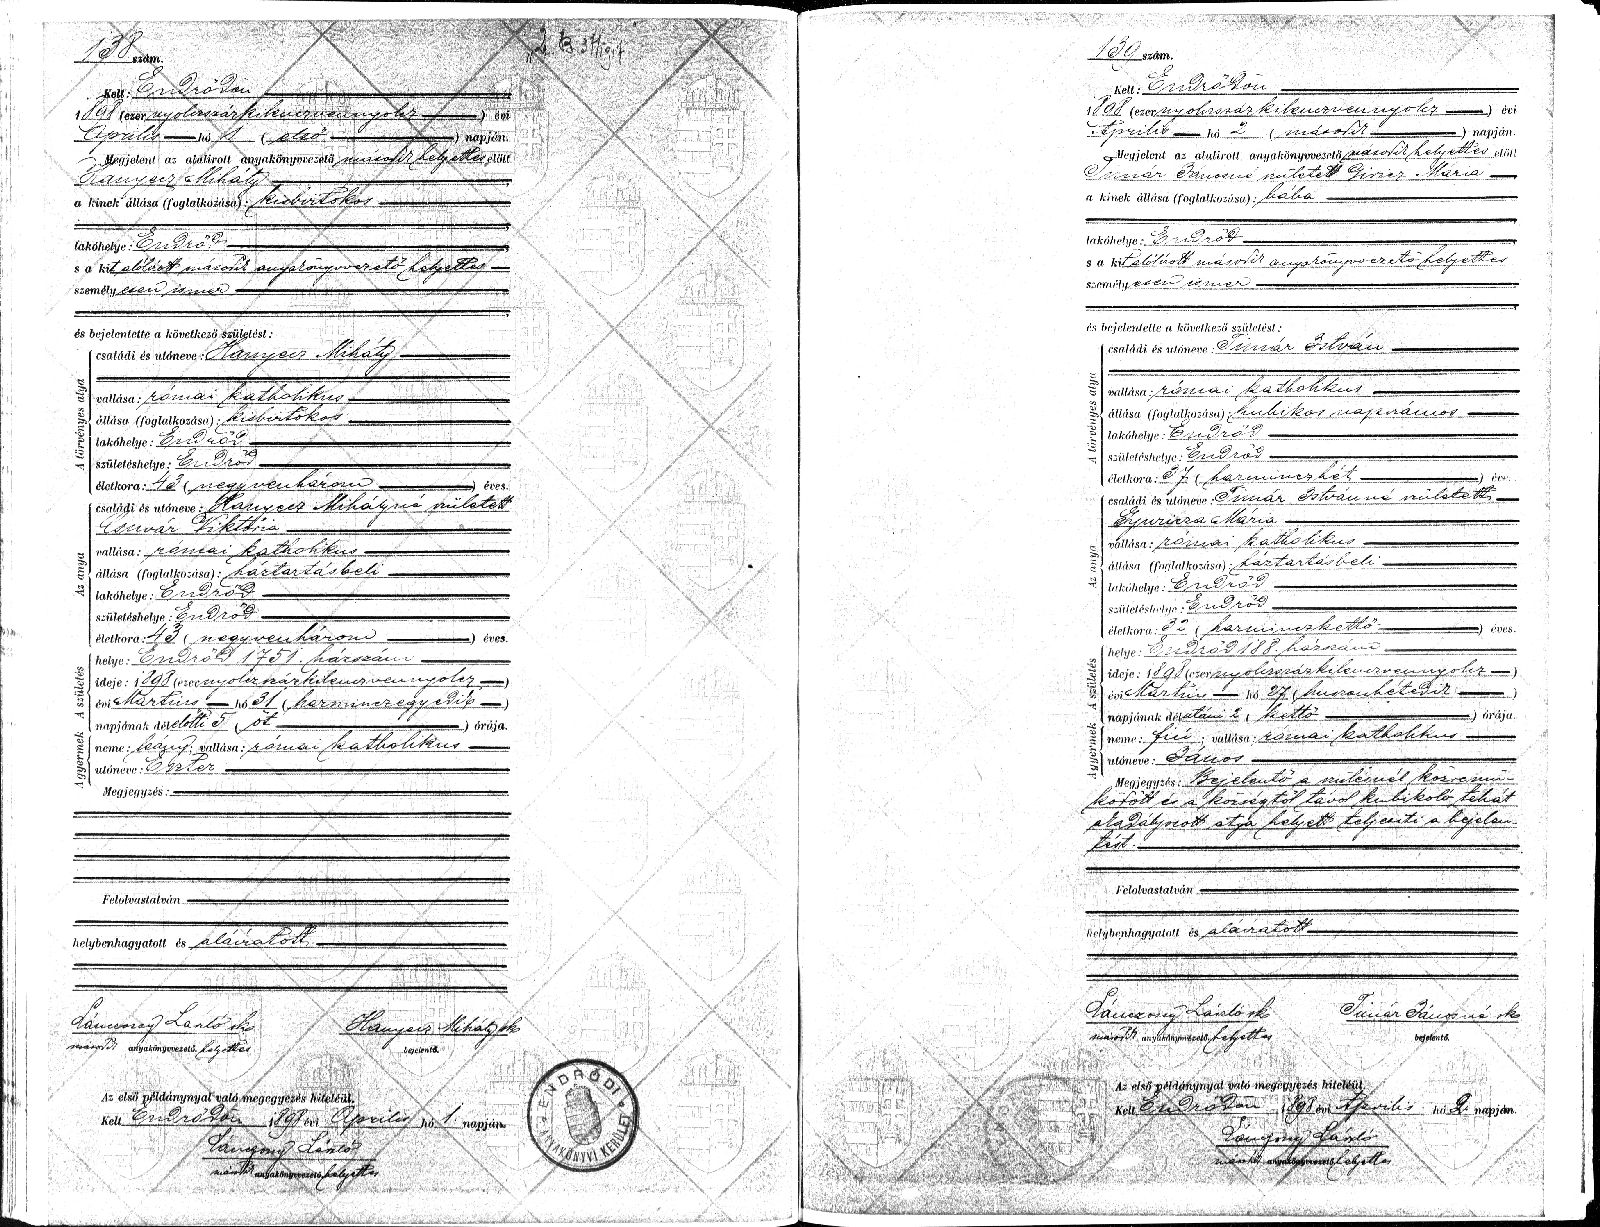 138 szám.
Kelt: Endrődön
1898 (ezernyolczszázkilenczvennyolcz) évi
Április hó 1 (első) napján.
Megjelent az alulirott anyakönyvvezető másodh helyettes előtt
Hanyecz Mihály
a kinek állása (foglalkozása): kisbirtokos
lakóhelye: Endrőd
s a kit alólirott másodh anyakönyvvezető helyettes
személyesen ismer
és bejelentette a következő születést:
A törvényes atyja
családi és utóneve: Hanyecz Mihály
vallása: római katholikus
állása (foglalkozása): kisbirtokos
lakóhelye: Endrőd
születéshelye: Endrőd
életkora: 43 (negyvenhárom) éves.
Az anya
családi és utóneve: Hanyecz Mihályné született
Csuvár Viktória
vallása: római katholikus
állása (foglalkozása): háztartásbeli
lakóhelye: Endrőd
születéshelye: Endrőd
életkora: 43 (negyvenhárom) éves.
A születés
helye: Endrőd 1751 házszám
ideje: 1898 (ezernyolczszázkilenczvennyolcz)
évi Martius hó 31 (harminczegyedik)
napjának délelőtti 5 (öt) órája.
A gyermek
neme: leány; vallása: római katholikus
utóneve: Eszter
Megjegyzés:
Felolvastatván
helybenhagyatott és aláiratott
Lánczosy László sk Hanyecz Mihály sk
másodh anyakönyvvezető helyettes bejelentő.
Az első példánynyal való megegyezés hiteléül.
Kelt Endrődön 1898 évi Április hó 1. napján.
Lánczosy László
másodh anyakönyvvezető helyettes
ENDRŐDI ANYAKÖNYVI KERÜLET
139 szám.
Kelt: Endrődön
1898 (ezernyolczszázkilenczvennyolcz) évi
Április hó 2 (második) napján.
Megjelent az alulirott anyakönyvvezető másodh helyettes előtt
Timár Jánosné született Giricz Mária
a kinek állása (foglalkozása): bába
lakóhelye: Endrőd
s a kit alólirott másodh anyakönyvvezető helyettes
személyesen ismer
és bejelentette a következő születést:
A törvényes atyja
családi és utóneve: Timár István
vallása: római katholikus
állása (foglalkozása): kubikos napszámos
lakóhelye: Endrőd
születéshelye: Endrőd
életkora: 37 (harminczhét) éves.
Az anya
családi és utóneve: Timár Istvánné született
Gyuricza Mária
vallása: római katholikus
állása (foglalkozása): háztartásbeli
lakóhelye: Endrőd
születéshelye: Endrőd
életkora: 32 (harminczkettő) éves.
A születés
helye: Endrőd 188 házszám
ideje: 1898 (ezernyolczszázkilenczvennyolcz)
évi Martius hó 27 (huszonhetedik)
napjának délutáni 2 (kettő) órája.
A gyermek
neme: fiú; vallása: római katholikus
utóneve: János
Megjegyzés: Bejelentő a szülésnél közremü-
ködött és a községtől távol kubikoló tehát
akadályozott atya helyett teljesiti a bejelen-
tést.
Felolvastatván
helybenhagyatott és aláiratott
Lánczosy László sk Timár Jánosné sk
másodh anyakönyvvezető helyettes bejelentő.
Az első példánynyal való megegyezés hiteléül.
Kelt Endrődön 1898 évi Április hó 2. napján.
Lánczosy László
másodh anyakönyvvezető helyettes